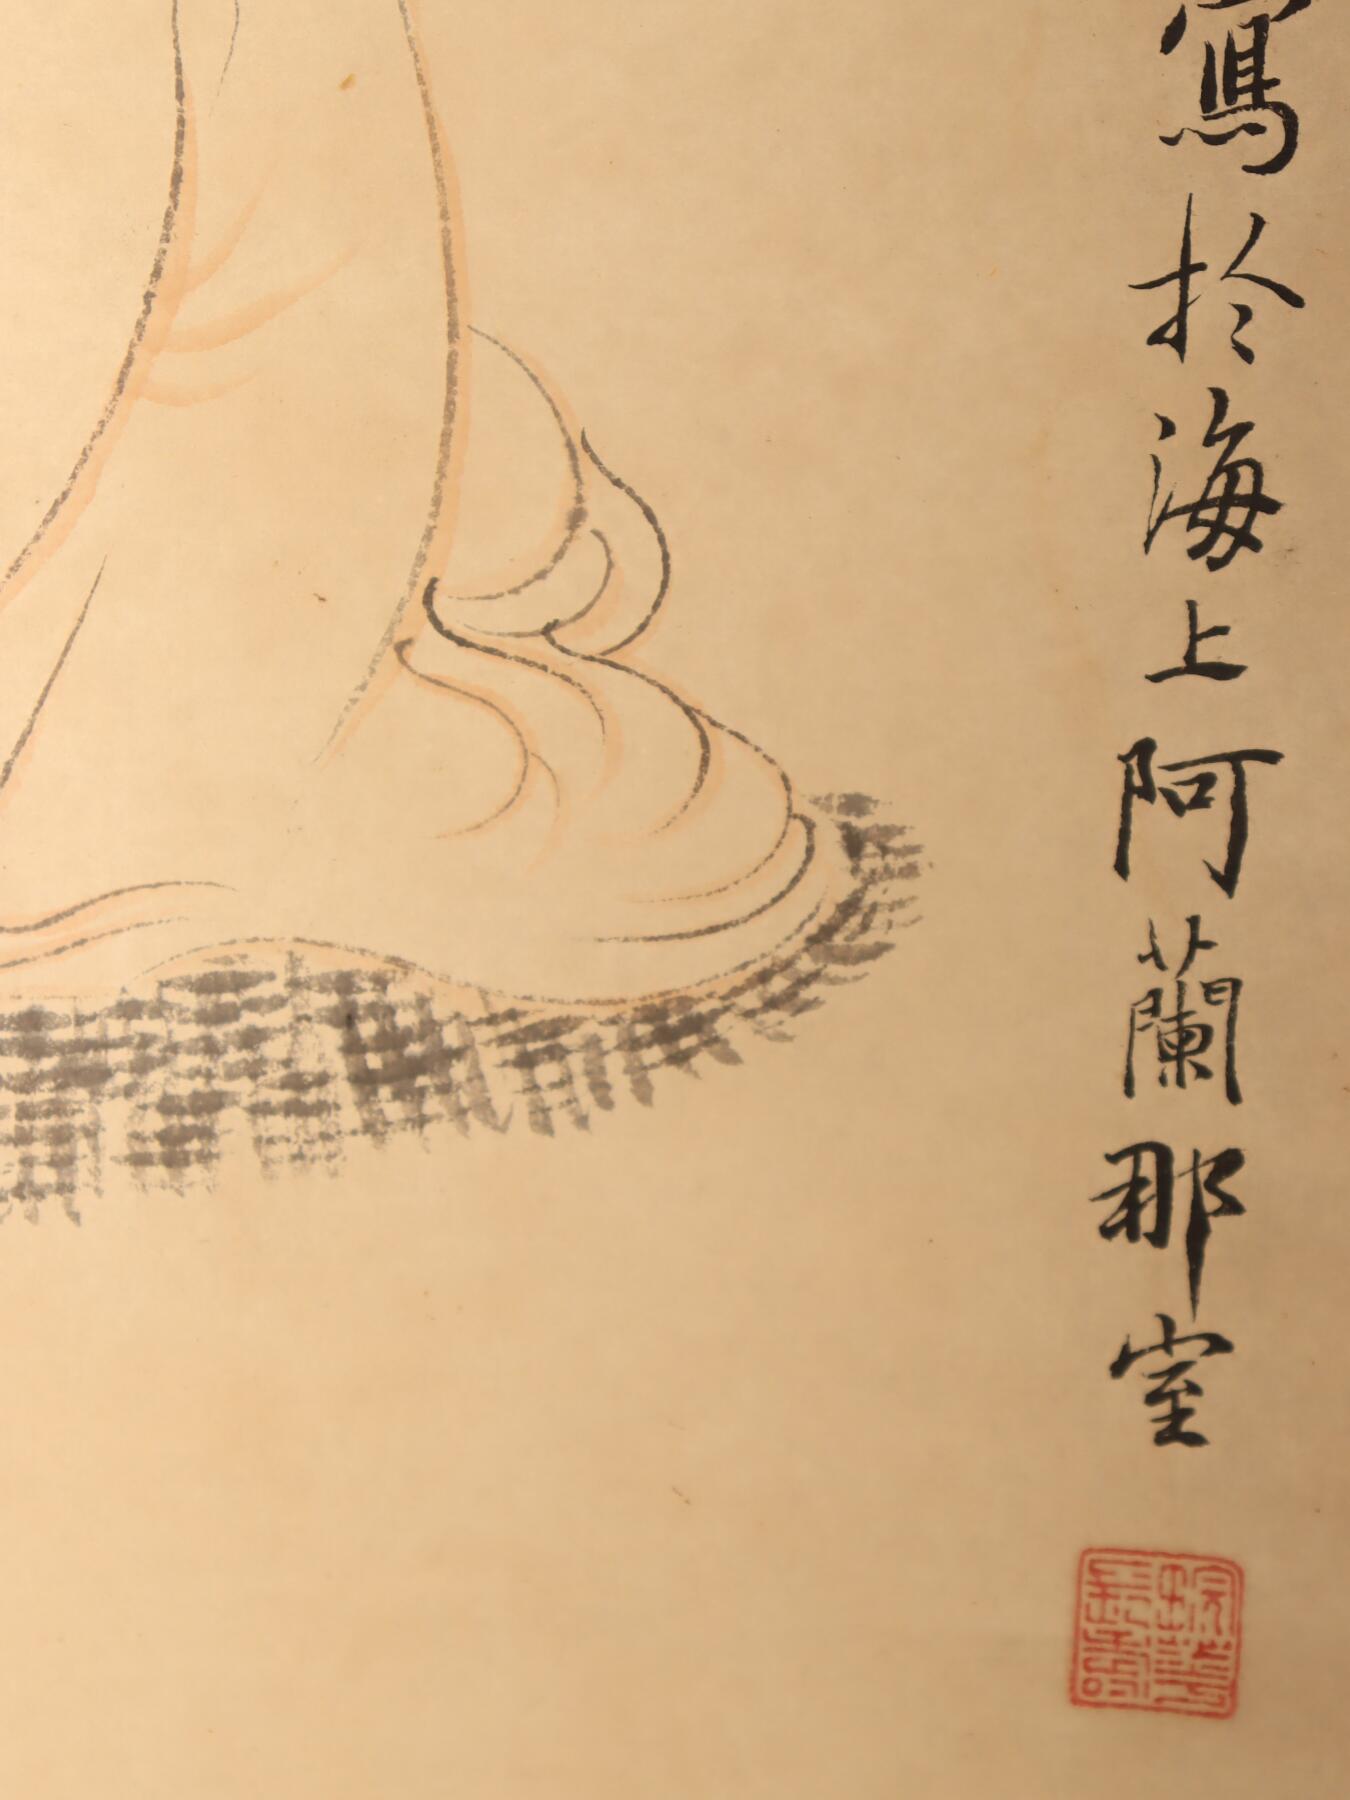 寫於海上阿蘭那室